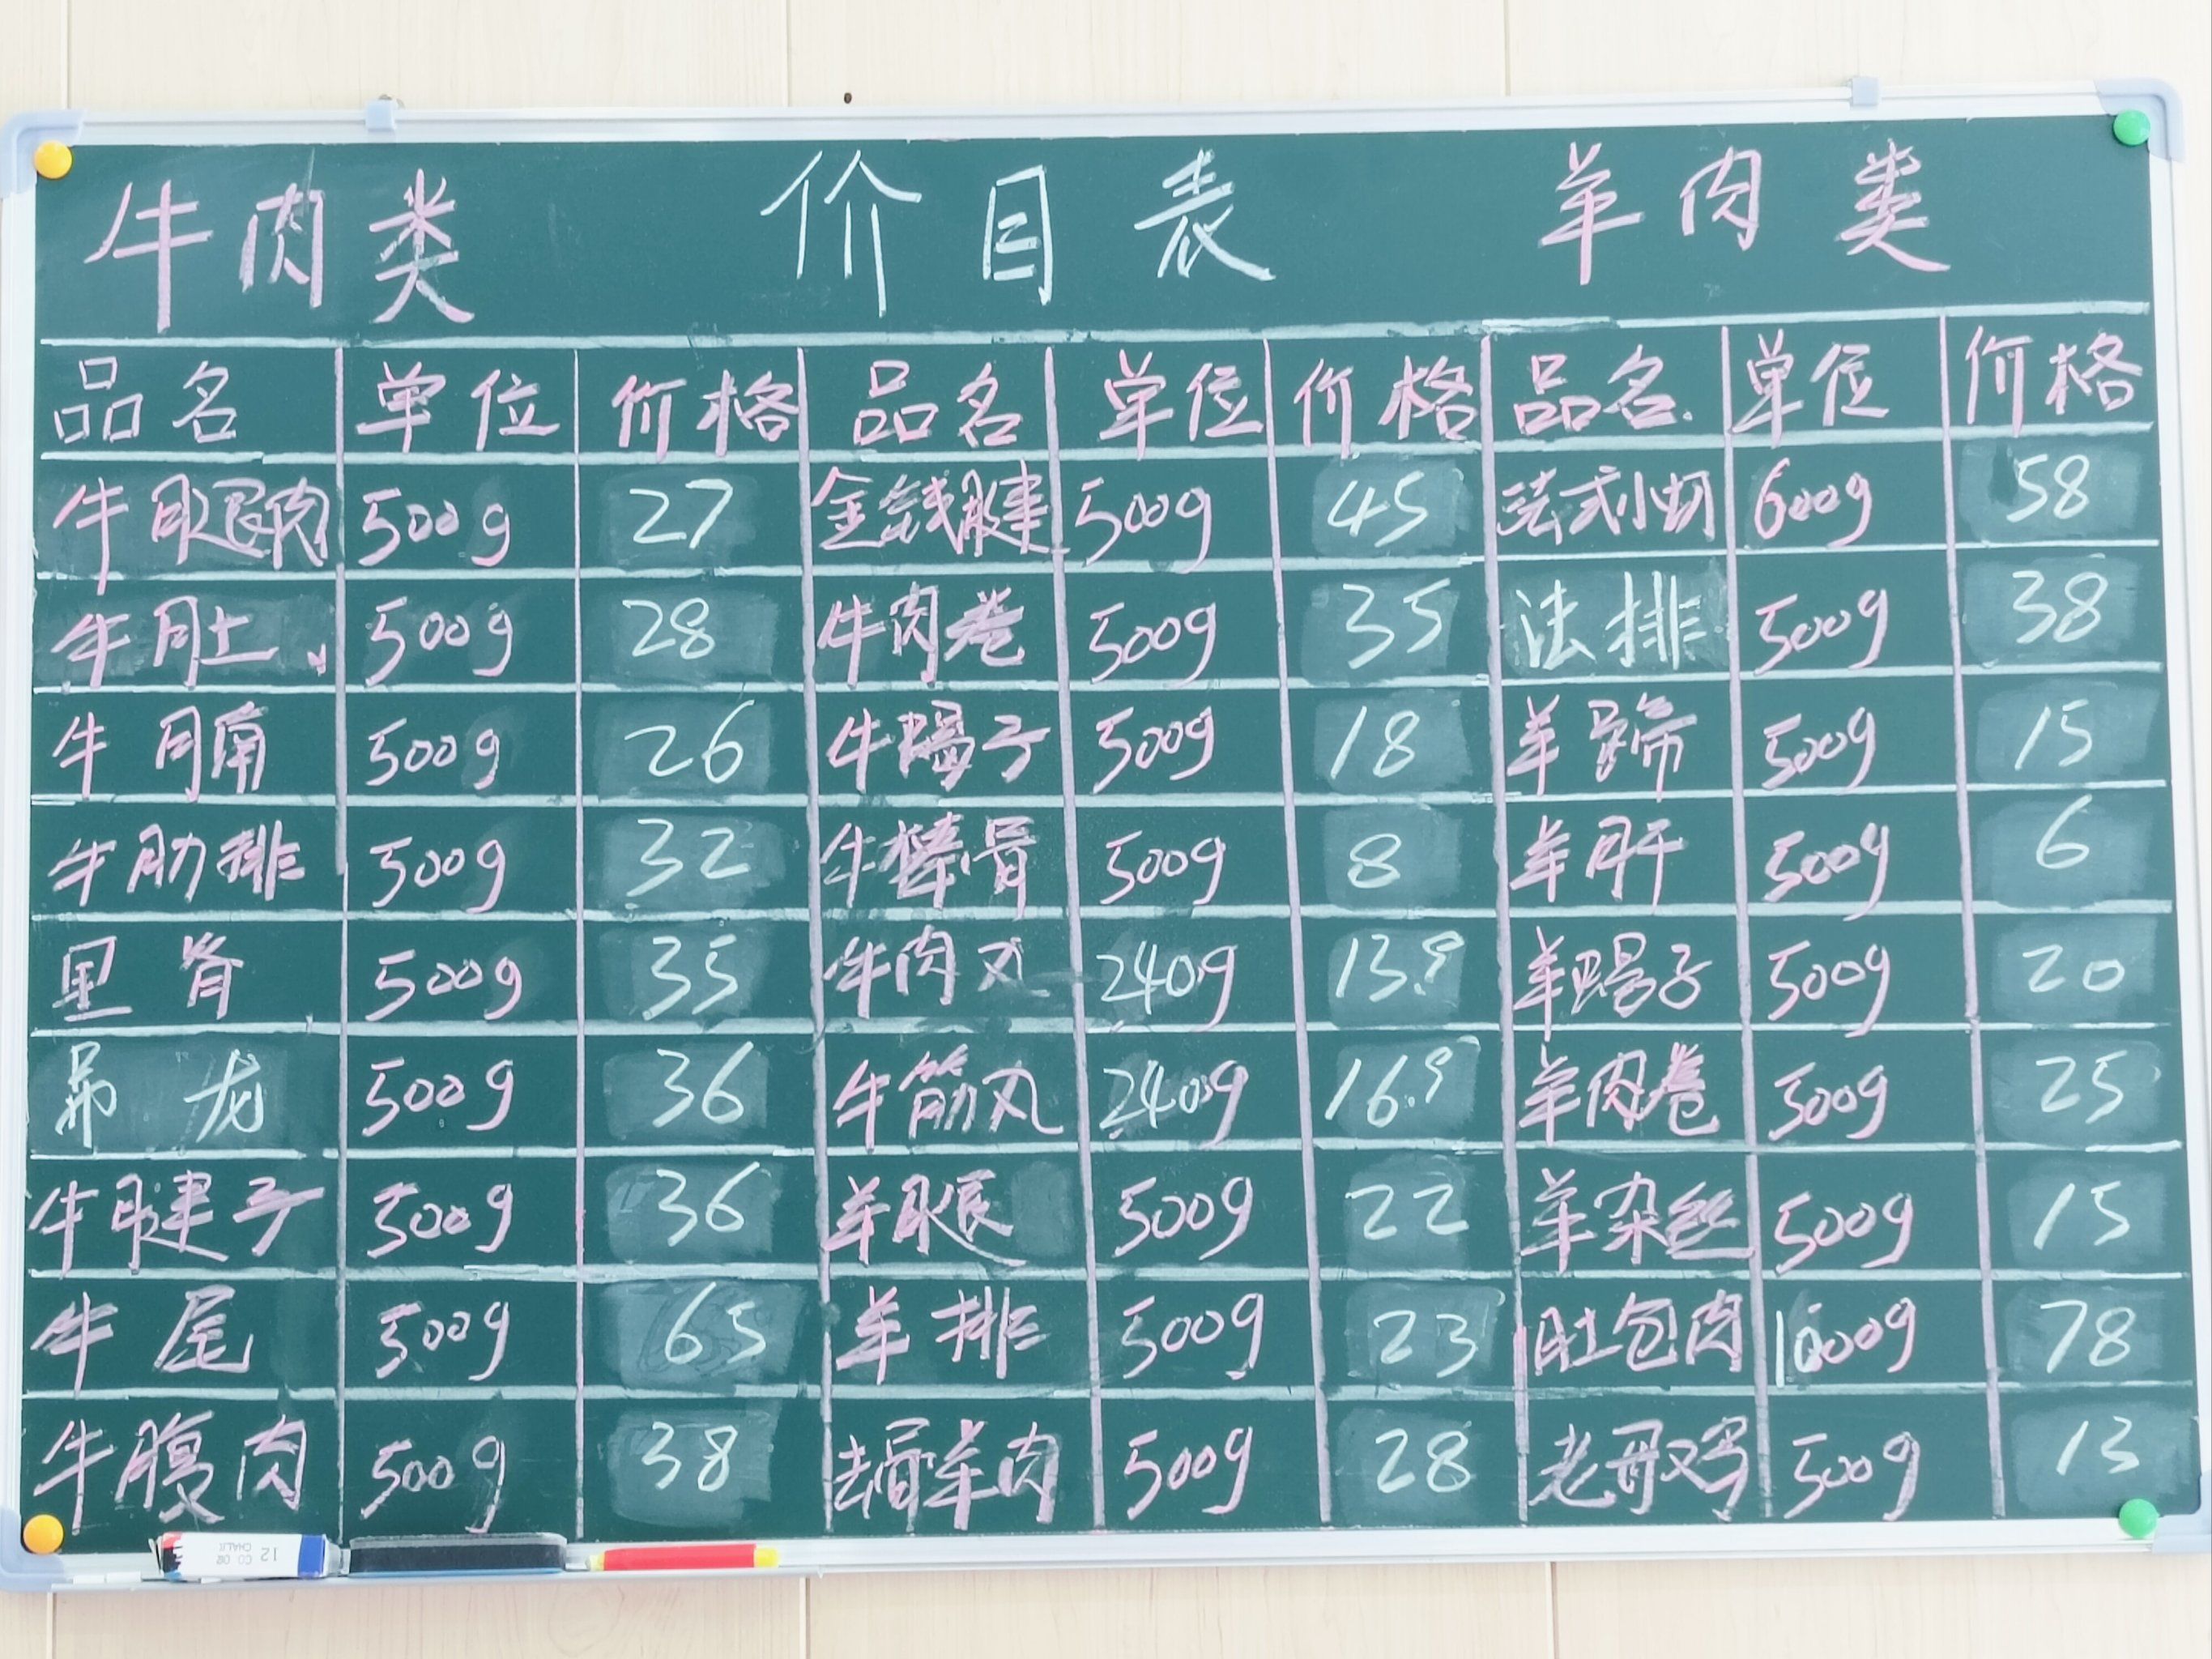 牛肉类 价目表 羊肉类
品名 单位 价格 品名 单位 价格 品名 单位 价格
牛腿肉 500g 27 金钱腱 500g 45 法式小切 600g 58
牛肚 500g 28 牛肉卷 500g 35 法排 500g 38
牛腩 500g 26 牛蝎子 500g 18 羊蹄 500g 15
牛肋排 500g 32 牛棒骨 500g 8 羊肝 500g 6
里脊 500g 35 牛肉丸 240g 13.9 羊蝎子 500g 20
吊龙 500g 36 牛筋丸 240g 16.9 羊肉卷 500g 25
牛腱子 500g 36 羊腿 500g 22 羊杂丝 500g 15
牛尾 500g 65 羊排 500g 23 肚包肉 1000g 78
牛腹肉 500g 38 去骨羊肉 500g 28 老母鸡 500g 13